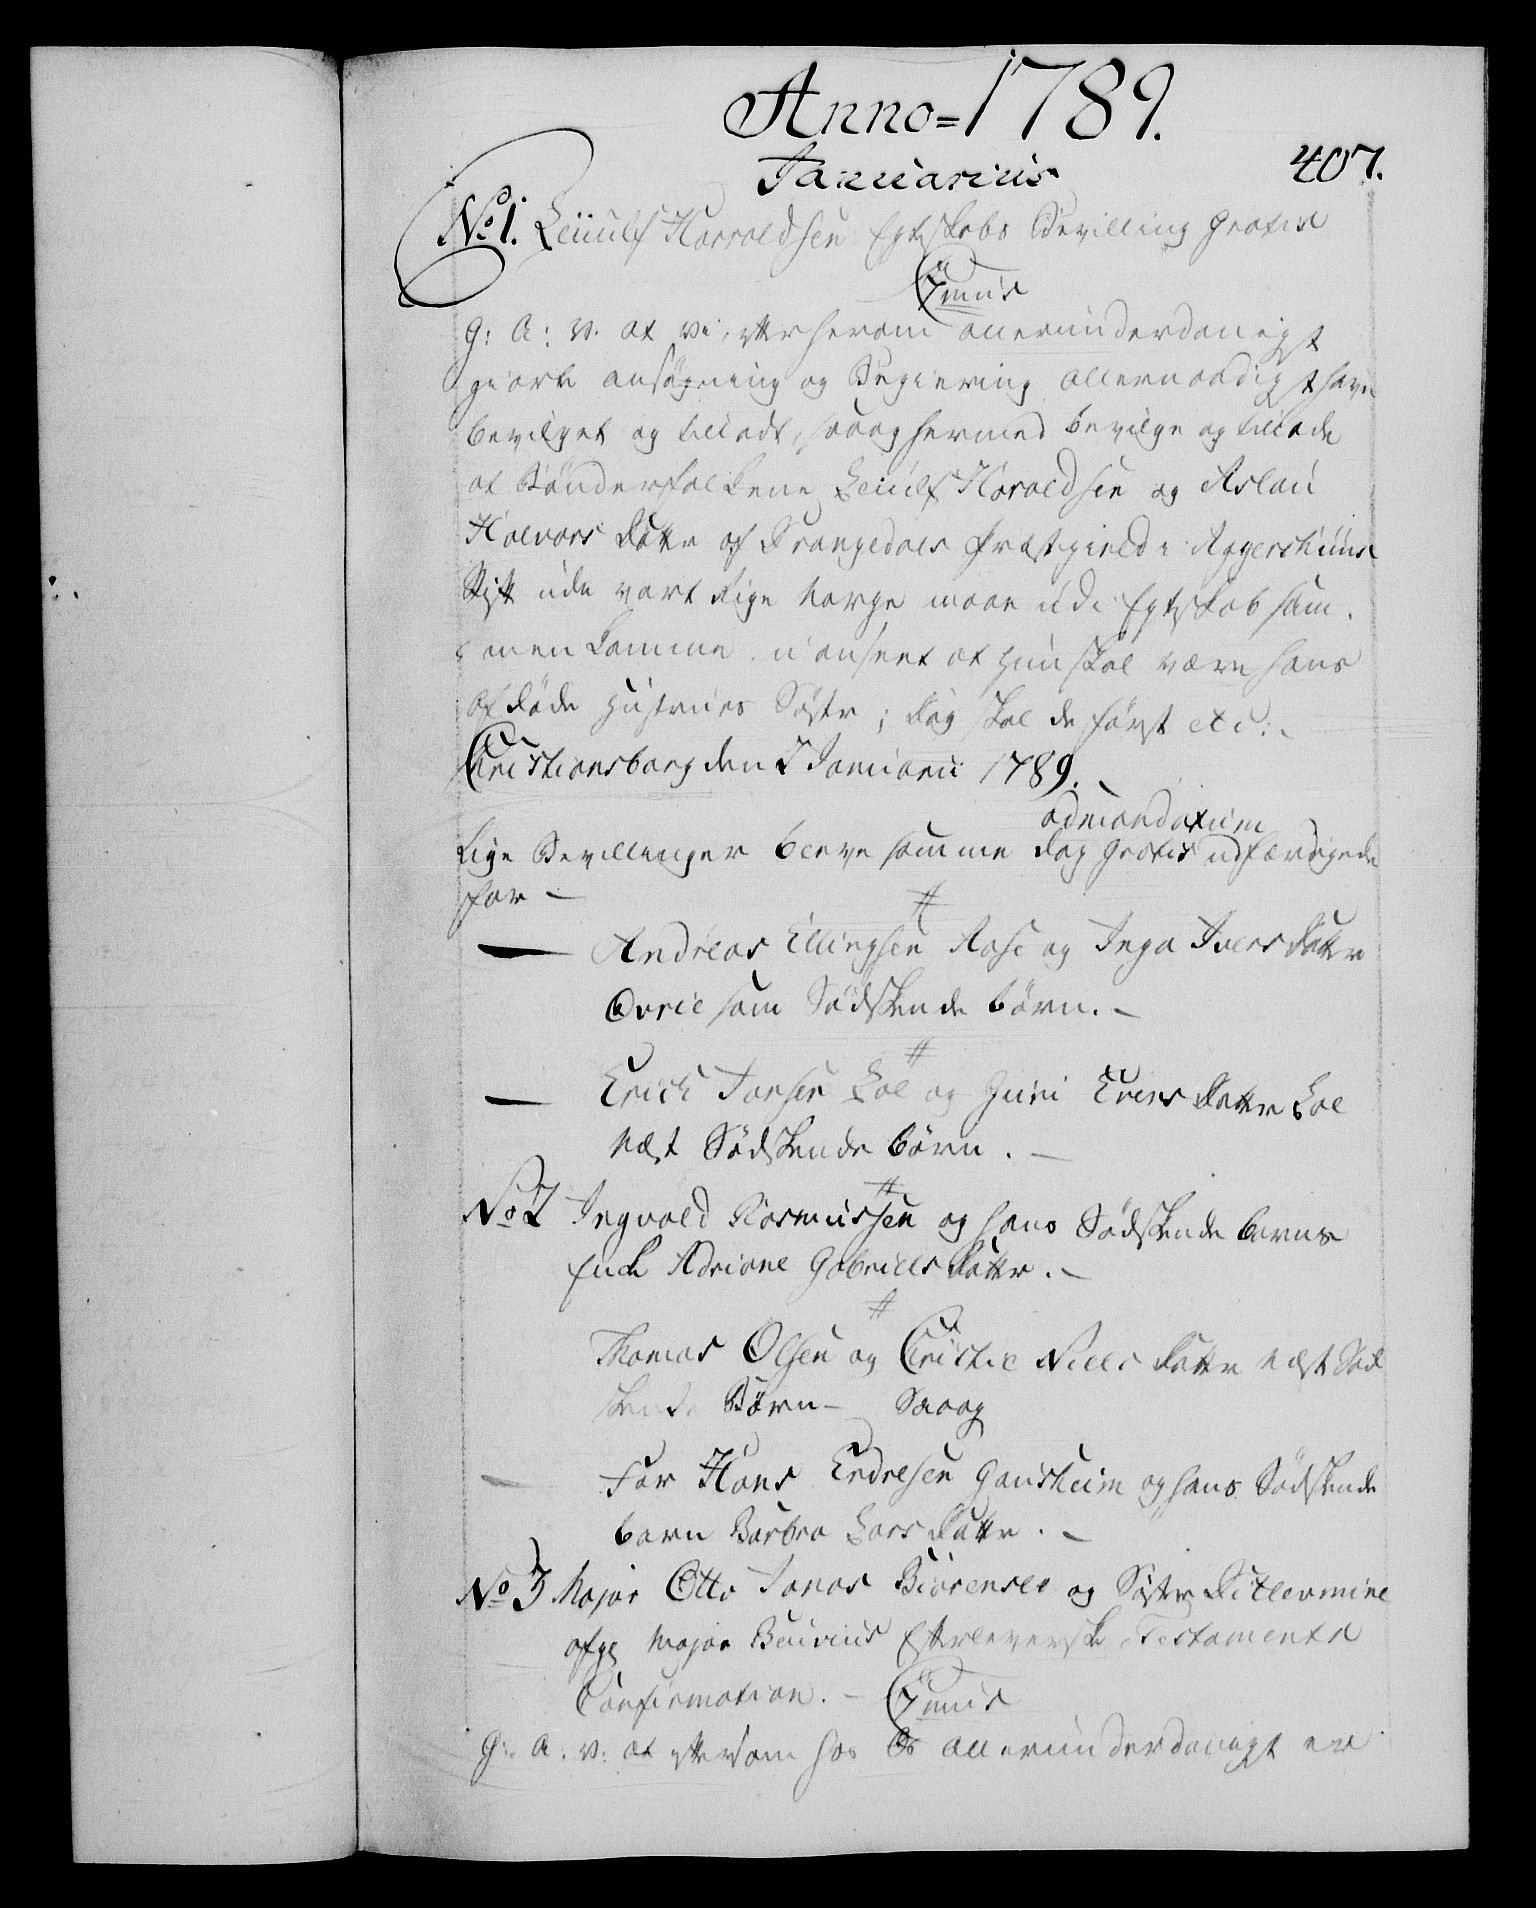 Anno=1789.
Januarius
407.
No 1. Leiulf Harroldsen Egteskabs Bevilling Gratis
C 7mus
G: A: V. at vi, efter herom allerunderdanigst
giorte ansøgning og Begiering allernaadigst have
bevilget og tilladt, saa og hermed bevilge og tillade
at Bønderfolkene Leiulf Haroldsen og Aslau
Halvors Datter af Drangedals Præstegield i Aggershuus
Stift udi vort Rige Norge maae udi Egteskab sam-
men komme, uanseet at hun skal være hans
afdøde Hustrues Søster; dog skal de først etc:
Christiansborg den 2 Januarii 1789.
ad mandatum
Lige Bevillinger bleve samme dag Gratis udfærdigede
for -
Andreas Ellingsen Rose og Inga Ivers Datter
som Sødskende børn. -
Erich Jonsen Loe og Guri Evers Datter Loe
Næst Sødskende børn. -
No 2 Ingvald Rasmussen og hans Sødskende barns
Enke Adriane Gabriels Datter. -
Thomas Olsen og Christie Niels Datter Næst Sød
skende Børn - Saa og
For Hans Endresen Gausheim og hans Sødskende
barn Barbra Lars Datter. -
No 3 Major Otto Jonas Biørensen og Søster Ditlevmine
afg. Major Efterleverske Testamente
Confirmation. - C 7mus
G: A: V: at eftersom hos Os allerunderdanigst er